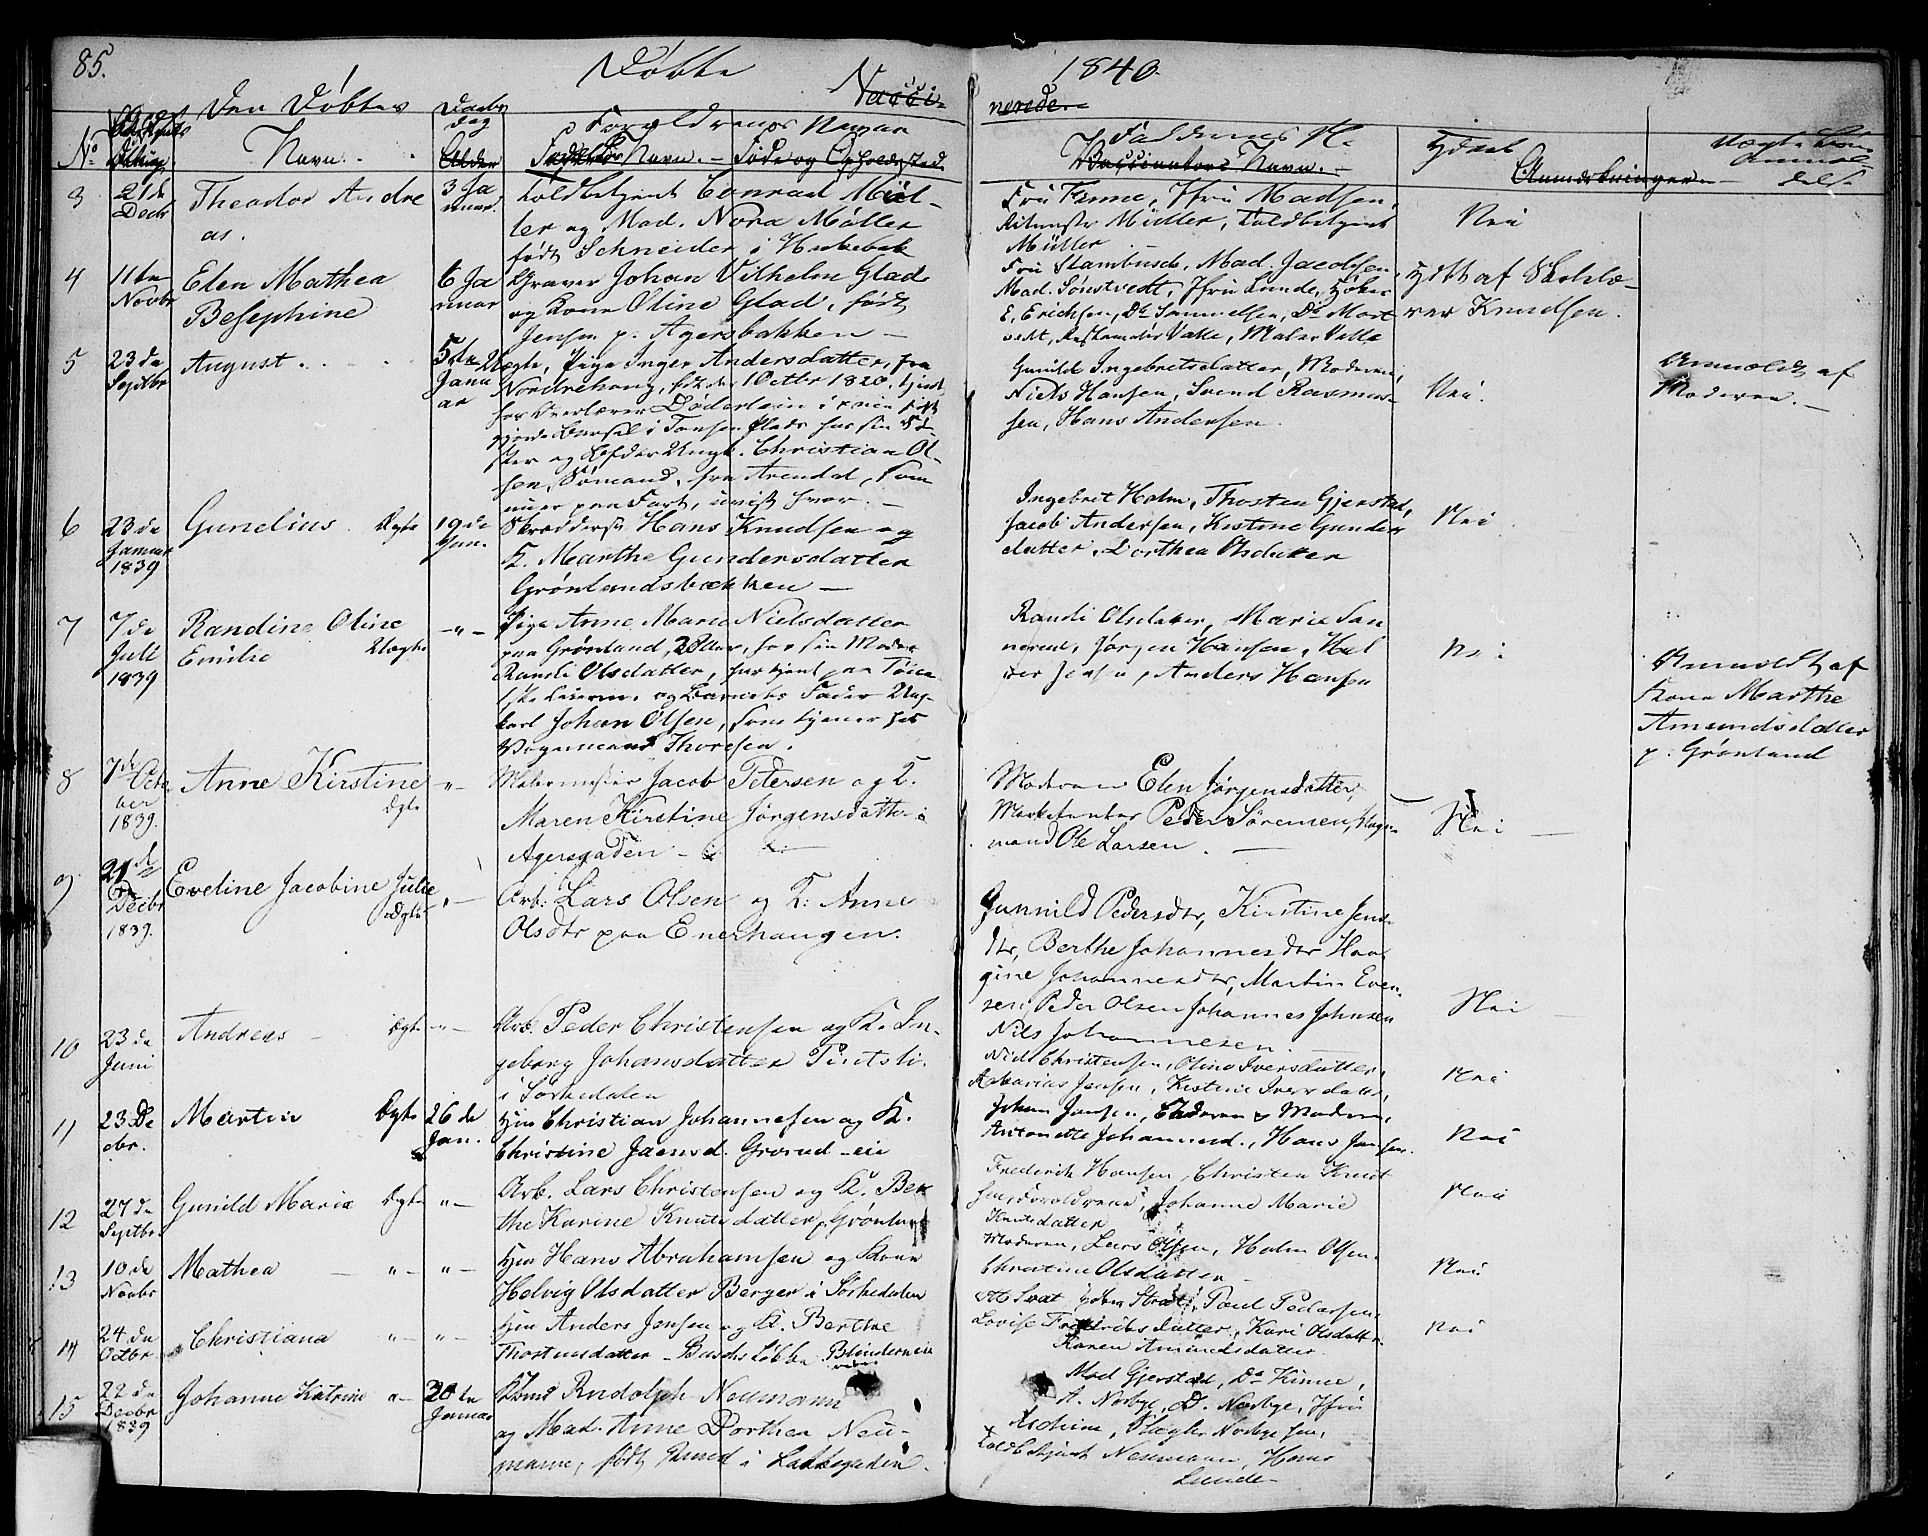 85.
Døbte
1840.
Vacci-
nerede.
Den Døbtes
Daabs
dag
Forældrenes Navne
Faddernes N.
No
Navn.
Alder
Navn. – Føde og Opholdssted
Vaccinateurs Navn. –
Anmærkninger
3
21de
Decbr
Theodor Andre
as.
3 Ja
nuar.
Toldbetjent Conrad Mül-
ler og Mad. Nora Møller
født Schneider i
Fru Finne, Jfru Madsen,
Müller, Toldbetjent
Müller
Nei
4
11te
Novbr
Elen Mathea
Besephine
6 Ja
nuar
Graver Johan Vilhelm Glad
og Kone Oline Glad, født
Jensen p. Agersbakken –
Fru Stambusch, Mad. Jacobsen,
Mad. Sønstvedt, Jfru Lunde,
E. Erichsen, Do Samuelsen, Do
Valle, Maler Valle
af Skolelæ-
rer Knudsen.
5
23de
Septbr
August
5te
Janu
ar
Uægte, Pige Inger Andersdatter, fra
Nordrehaug, født den 1 Octbr 1820, tjent
for Overlærer Døderlein i
i Tonsen Plads hos sin
og Ungk. Christian Ol-
sen, Sømand, fra Arendal, som
nu er paa Fart, uvist hvor. –
Gunild Ingebretsdatter, Moderen,
Niels Hansen, Svend Rasmus-
sen, Hans Andersen.
Nei.
Anmeldt af
Moderen. –
6
23de
Januar
1839
Gunelius
Ægte
19de
Jan.
Skræddersv. Hans Knudsen og
K. Marthe Gundersdatter
Grønlandsbækken –
Ingebret Holm, Thosten Gjerstad,
Jacob Andersen, Kistine Gunders
datter, Dorthea Olsdatter
Nei
7
7de
Juli
1839
Randine Oline
Emilie
Uægte
– " –
Pige Anne Marie Nielsdatter
paa Grønland, 20 Aar, hos sin Moder
Randi Olsdatter, har tjent paa Tøien
og Barnets Fader Ung-
karl Johan Olsen, som tjener hos
Vognmand Thoresen.
Randi Olsdatter, Marie San
nerud, Jørgen Hansen, Hal
vor Jensen, Anders Hansen
Nei
Anmeldt af
Kone Marthe
Amundsdatter
p. Grønland
8
7de Octo
ber
1839.
Anne Kirstine
Ægte
– " –
Malermester Jacob Petersen og K.
Maren Kirstine Jørgensdatter i
Agersgaden –
Moderen Elen Jørgensdatter,
Marketenter Peder Sørensen,
mand Ole Larsen. –
Nei –
9
21de
Decbr
1839.
Eveline Jacobine Julie
Ægte
" –
Arb: Lars Olsen og K: Anne
Olsdtr paa Enerhaugen.
Gunnild Pedersdtr, Kirstine Jens
dtr, Berthe Johannesdtr
gine Johannesdtr, Martin Even-
sen, Peder Olsen, Johannes Johnsen
Nils Johannesen.
Nei –
10
23de
Juni
Andreas –
Ægte
– " –
Arb. Peder Christensen og K. In-
geborg Johansdatter
i Sørkedalen
Niels Christensen, Oline Iversdatter,
Zakarias Jensen, Kistine Iversdatter,
Nei
11
23 De
cbr.
Martin
Ægte
26de
Jan.
Hm Christian Johannesen og K.
Christine Jaensd. Grorud-eie
Johan Jansen, Moderen,
Antonette Johannesd., Hans Jansen.
Nei
12
27de
Septbr
Gunild Maria
Ægte
" –
Arb. Lars Christensen og K. Ber
the Karine Knutsdatter, p. Grønland
Frederik Hansen, Christen Knut
sen, Forældrene, Johanne Marie
Knutsdatter
Nei
13
10de
Novbr
Mathea –
" –
" –
Hm Hans Abrahamsen og Kone
Helvig Olsdatter Berger i Sørkedalen
Moderen, Lars Olsen, Halm Olsen
Christine Olsdatter –
Nei
14
24de
Octbr
Christiana
" –
" –
Hm Anders Jensen og K. Berthe
Thostensdatter – Blindern eie
Paul Pedersen,
Lovise Fredriksdatter, Kari Olsdatter
Karen Amundsdatter.
Nei
15
22de
Decbr
1839
Johanne Katrine
" –
20de
Januar
Kbmd Rudolph Neumann
og Mad. Anne Dorthea Neu-
mann, født Ramd i Lakkegaden.
Mad Gjerstad, Do Kinne,
A. Norbye, D. Norbye, Jfru
Norbye sen,
Toldbetjent Neumann, Hans
Lunde –